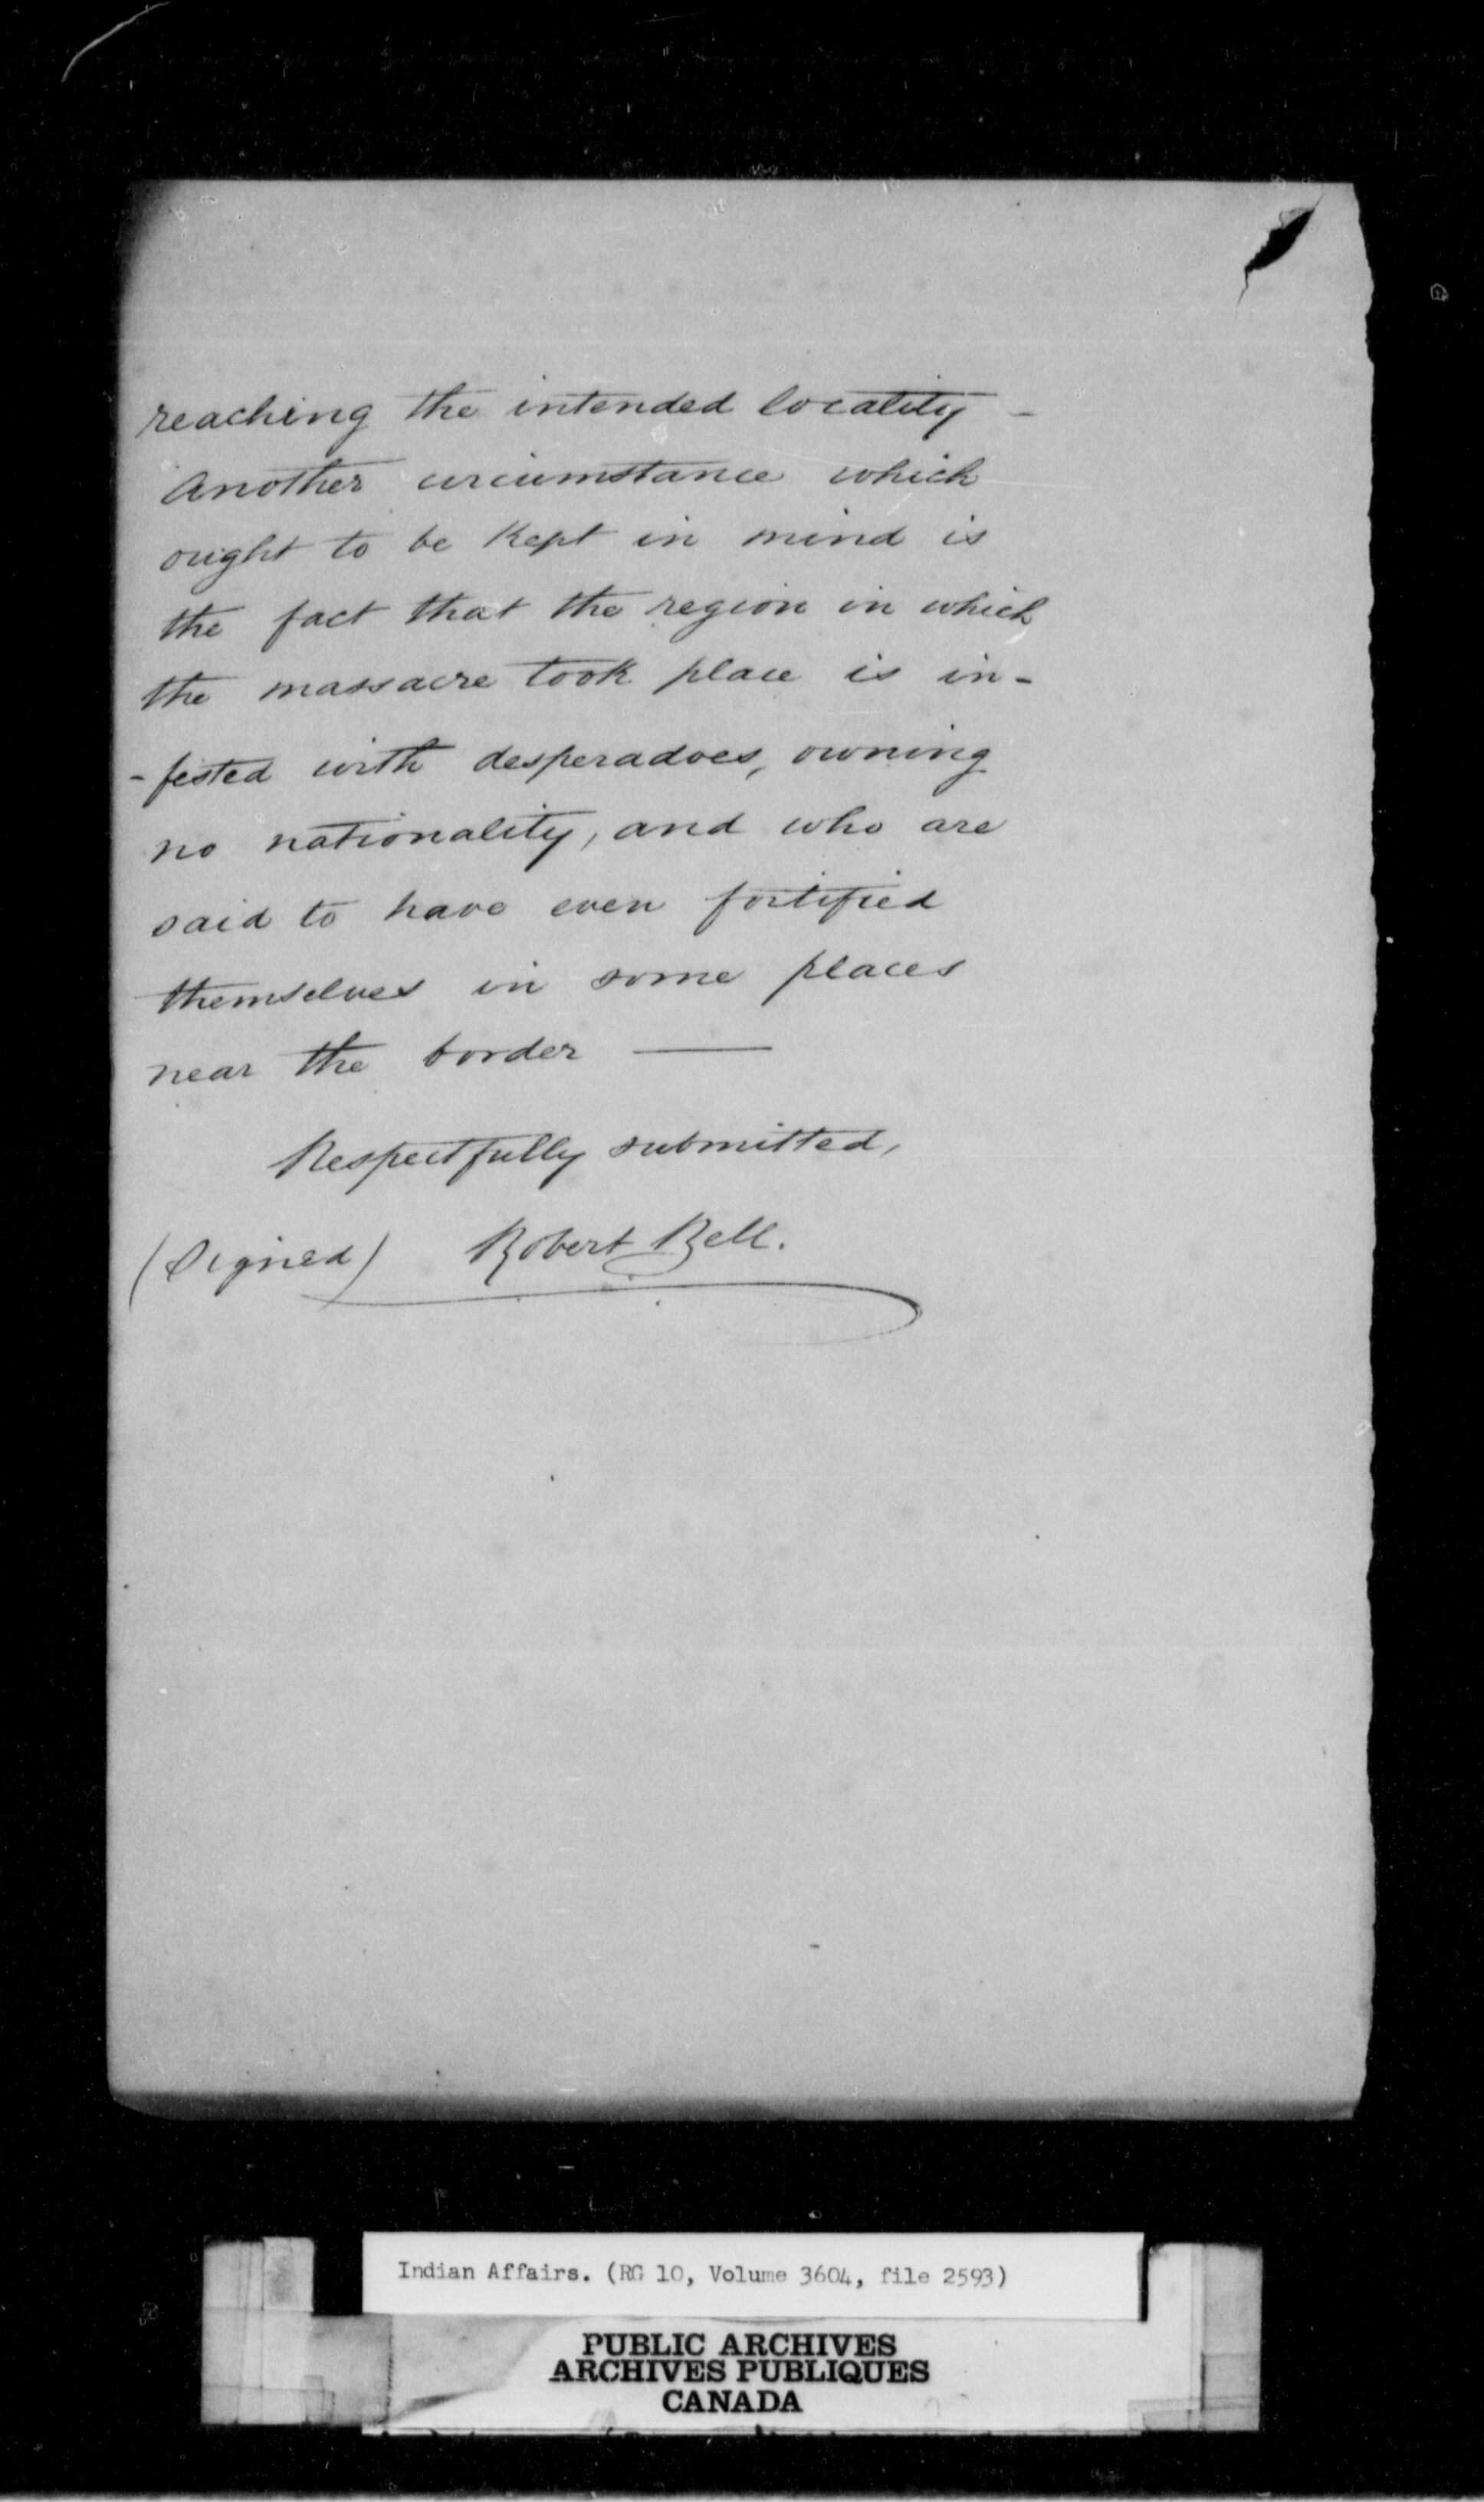 reaching the intended locality -
Another circumstance which
ought to be kept in mind is
the fact that the region in which
the massacre took place is in-
-fested with desperadoes, owning
no nationality, and who are
said to have even fortified
themselves in some places
near the border —
Respectfully submitted,
(Signed) Robert Bell.
Indian Affairs. (RG 10, Volume 3604, file 2593)
PUBLIC ARCHIVES
ARCHIVES PUBLIQUES
CANADA